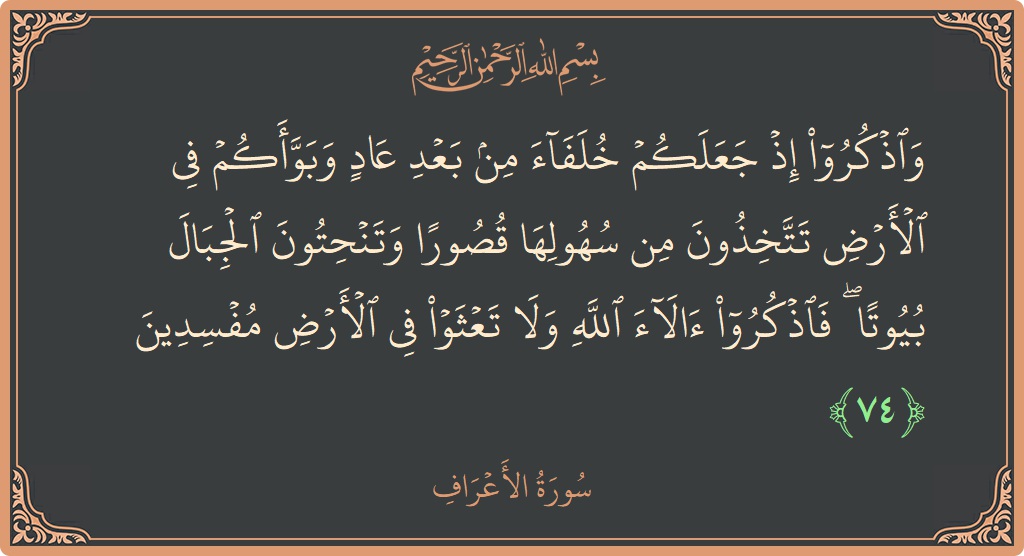 بِسْمِ اللهِ الرَّحْمٰنِ الرَّحِيْمِ
وَٱذۡكُرُوٓاْ إِذۡ جَعَلَكُمۡ خُلَفَآءَ مِنۢ بَعۡدِ عَادٍ وَبَوَّأَكُمۡ فِي
ٱلۡأَرۡضِ تَتَّخِذُونَ مِن سُهُولِهَا قُصُورًا وَتَنۡحِتُونَ ٱلۡجِبَالَ
بُيُوتًاۖ فَٱذۡكُرُوٓاْ ءَالَآءَ ٱللَّهِ وَلَا تَعۡثَوۡاْ فِي ٱلۡأَرۡضِ مُفۡسِدِينَ
﴿٧٤﴾
سُورَةُ الأَعْرَافِ